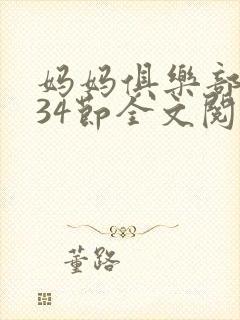 妈妈俱樂部
34節全文閱
董路